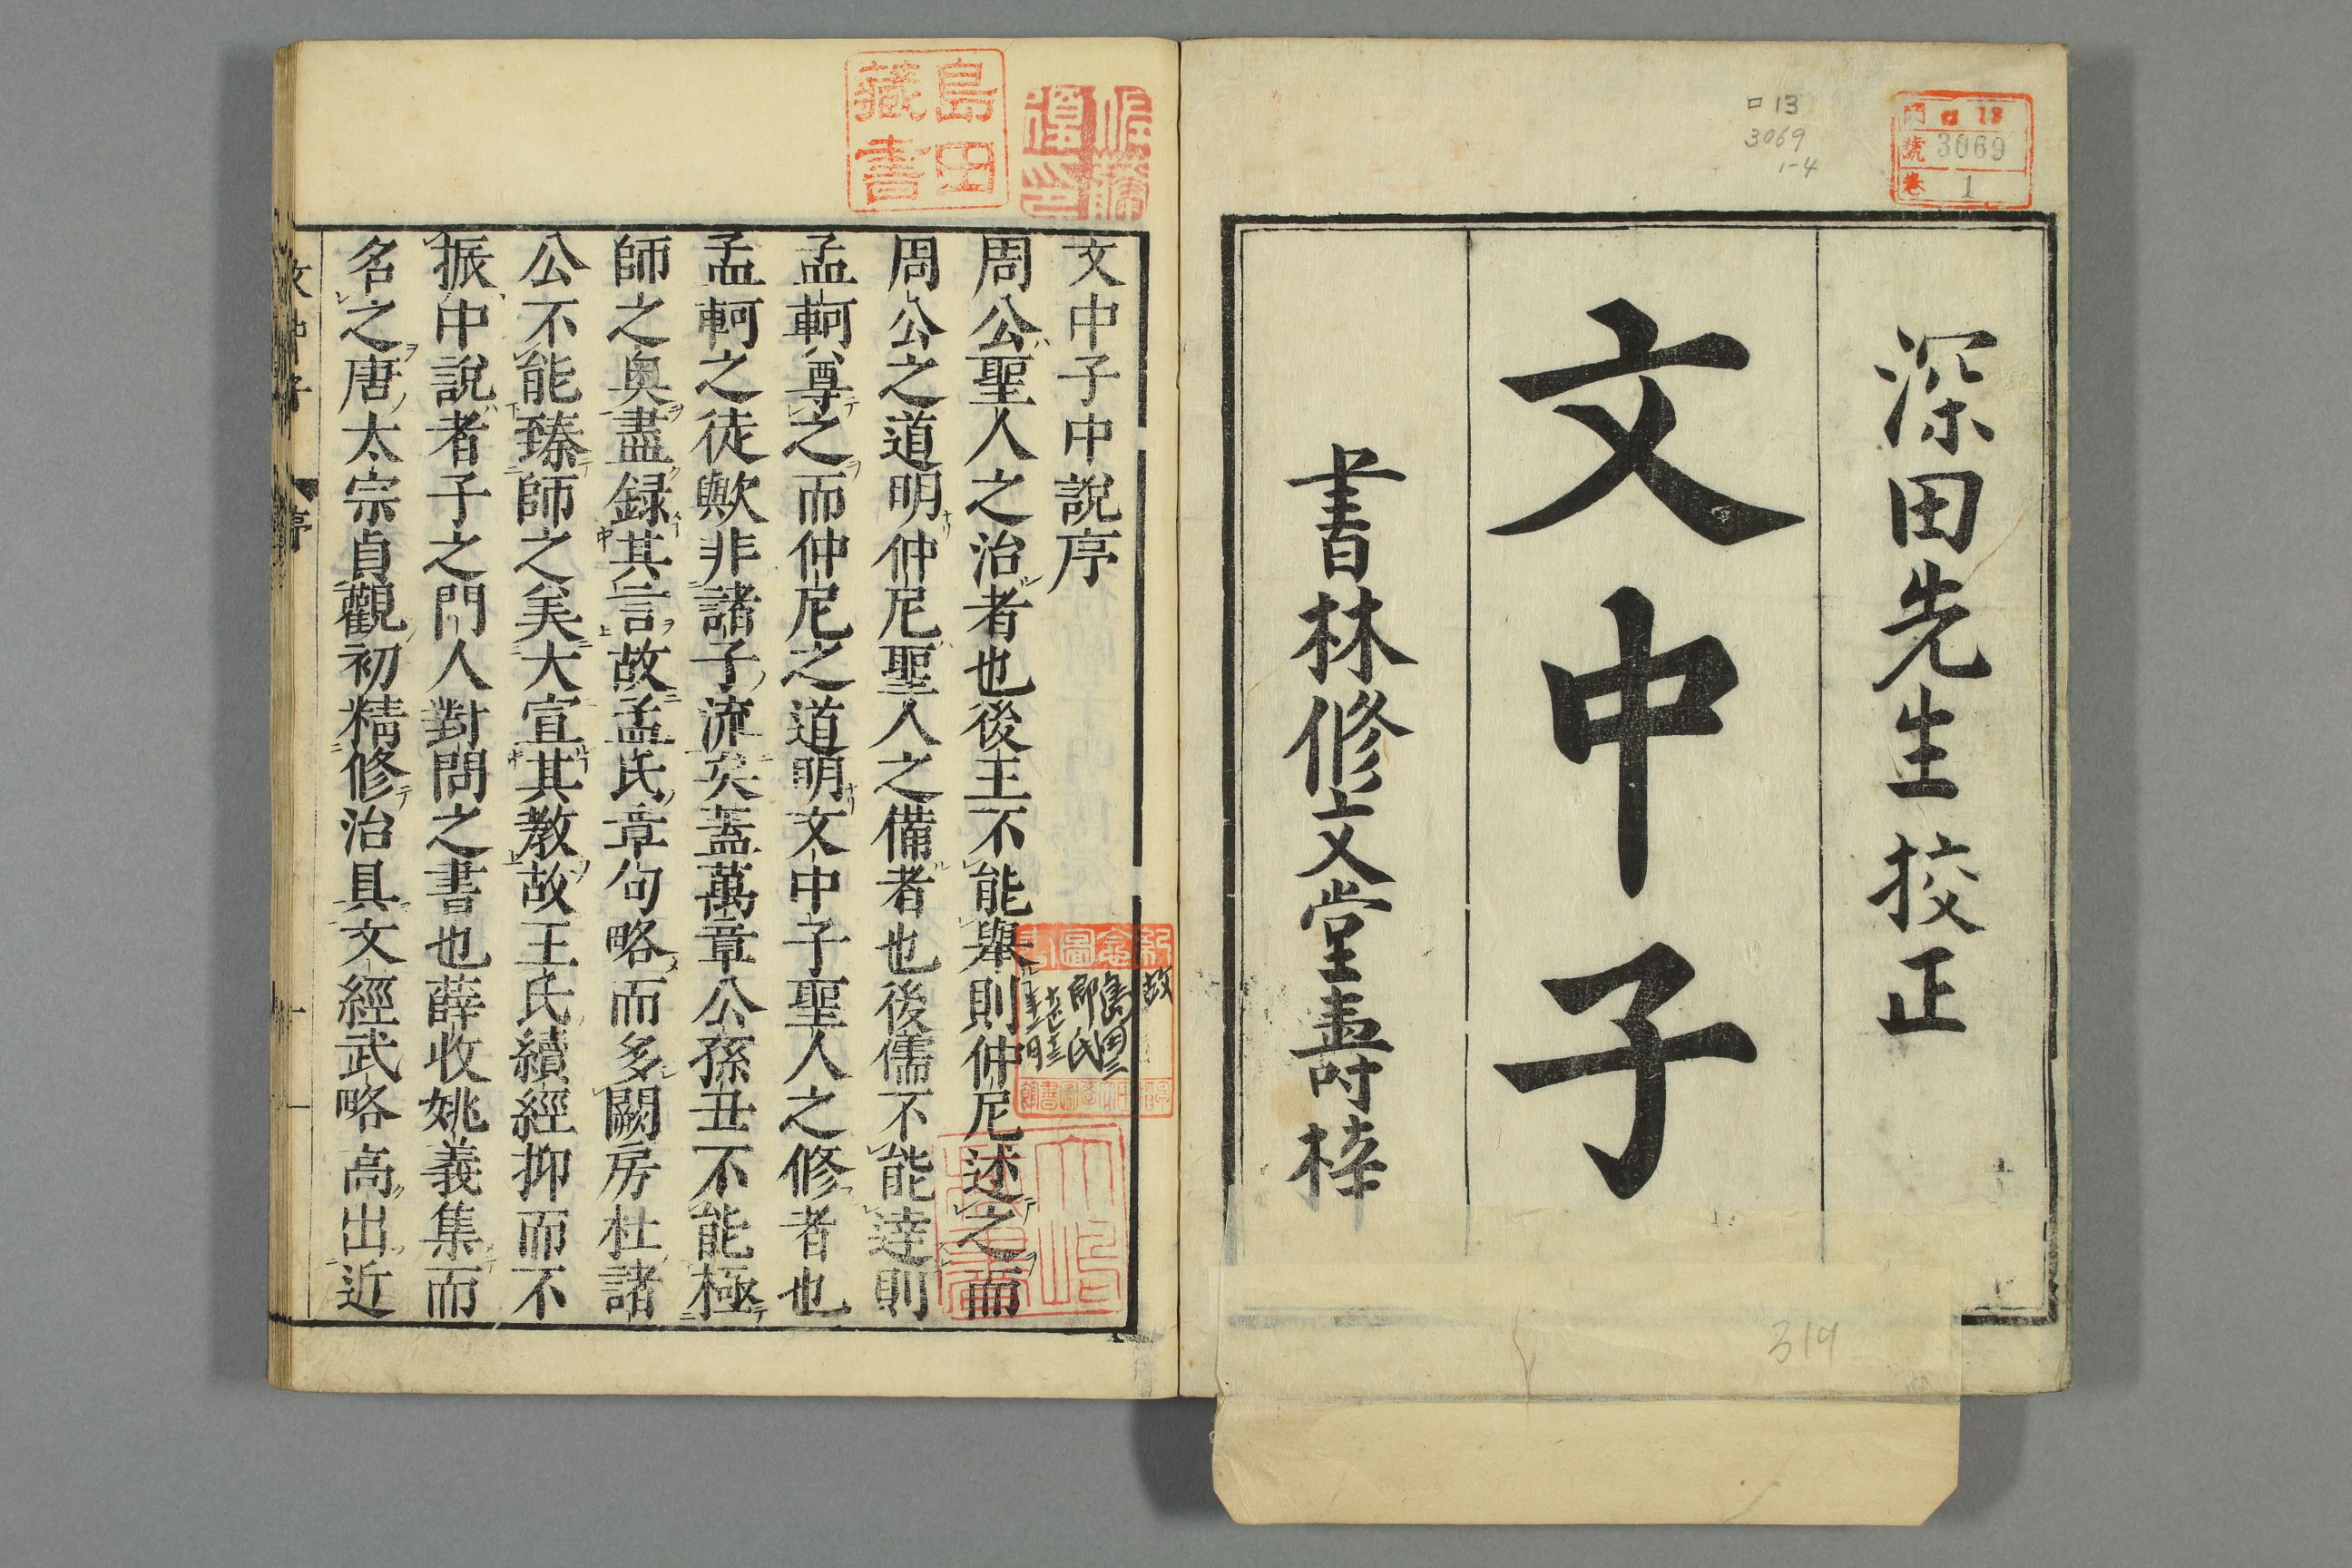 深田先生挍正
文中子
書林修文堂壽梓
ロ13
3069
1-4
門 ロ 13
號 3069
卷 1
319
島田
藏書
文中子中說序
周公聖人之治者也後王不能舉則仲尼述之而
周公之道明仲尼聖人之備者也後儒不能達則
孟軻尊之而仲尼之道明文中子聖人之修者也
孟軻之徒歟非諸子流矣蓋萬章公孫丑不能極
師之奧盡録其言故孟氏章句略而多闕房杜諸
公不能臻師之美大宣其教故王氏續經抑而不
振中說者子之門人對問之書也薛收姚義集而
名之唐太宗貞觀初精修治具文經武略高出近
文中子 序 一